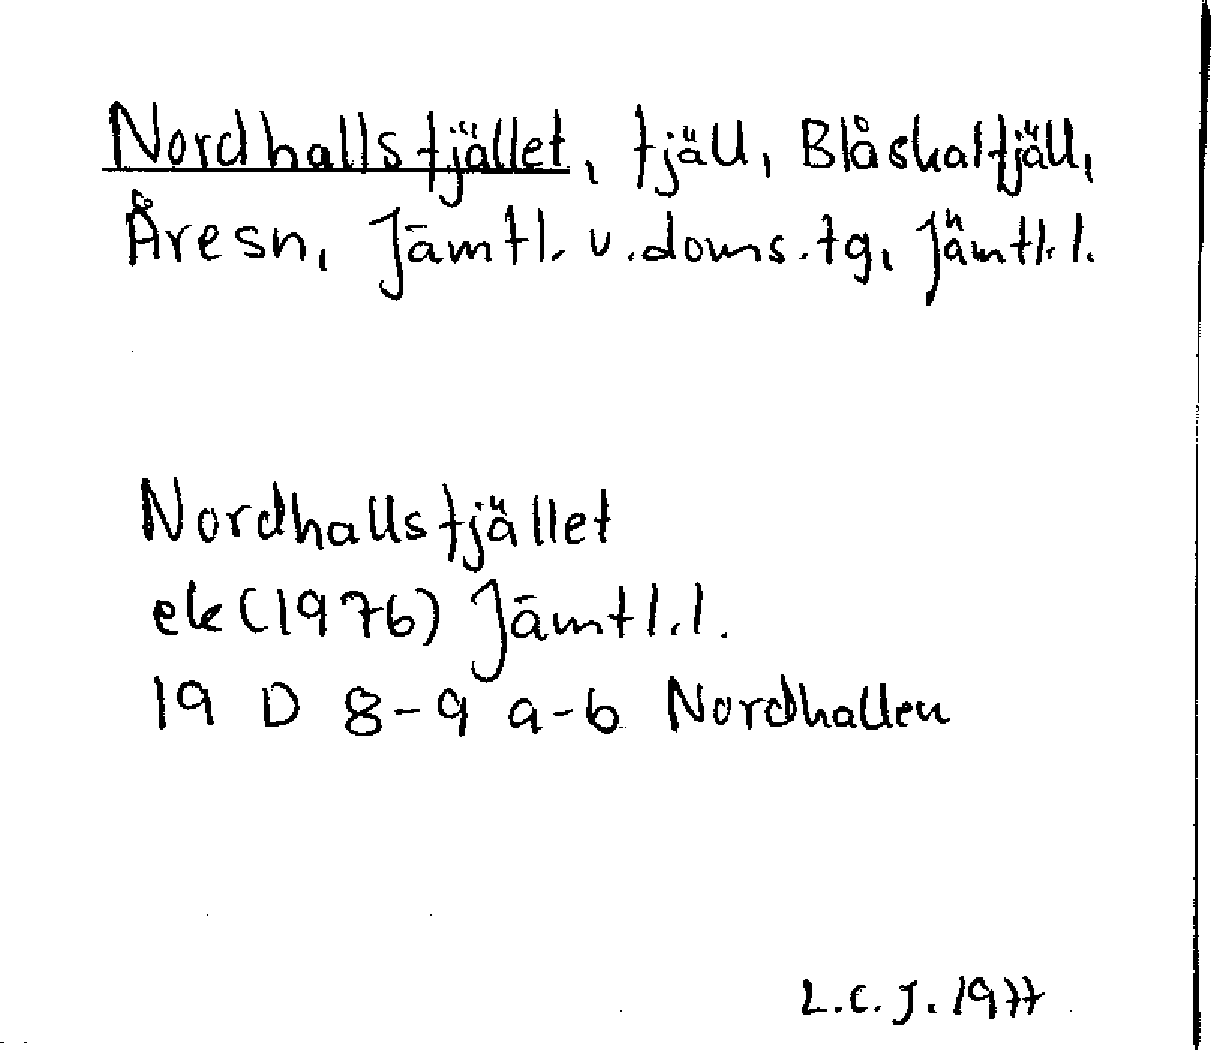 Nordhallsfjället, fjäll, Blåskalfjäll,
Åresn, Jämtl. v. doms.tg, Jämtl.l.
Nordhallsfjället
ek (1976) Jämtl.l.
19 D 8-9 a-b Nordhallen
L.C.J. 1977